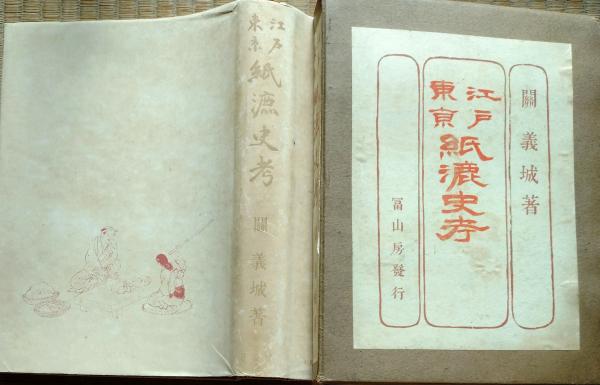 江戸
東京
紙漉史考
關義城著
關義城著
江戸
東京
紙漉史考
冨山房發行